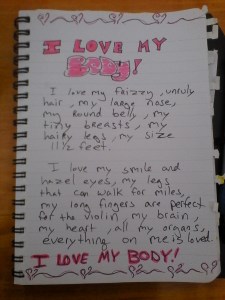 I LOVE MY
Body!
I love my frizzy, unruly
hair, my large nose,
my round belly, my
tiny breasts, my
hairy legs, my size
11 1/2 feet.
I love my smile and
hazel eyes, my legs
that can walk for miles,
my long fingers are perfect
for the violin, my brain,
my heart, all my organs,
everything on me is loved.
I LOVE MY BODY!